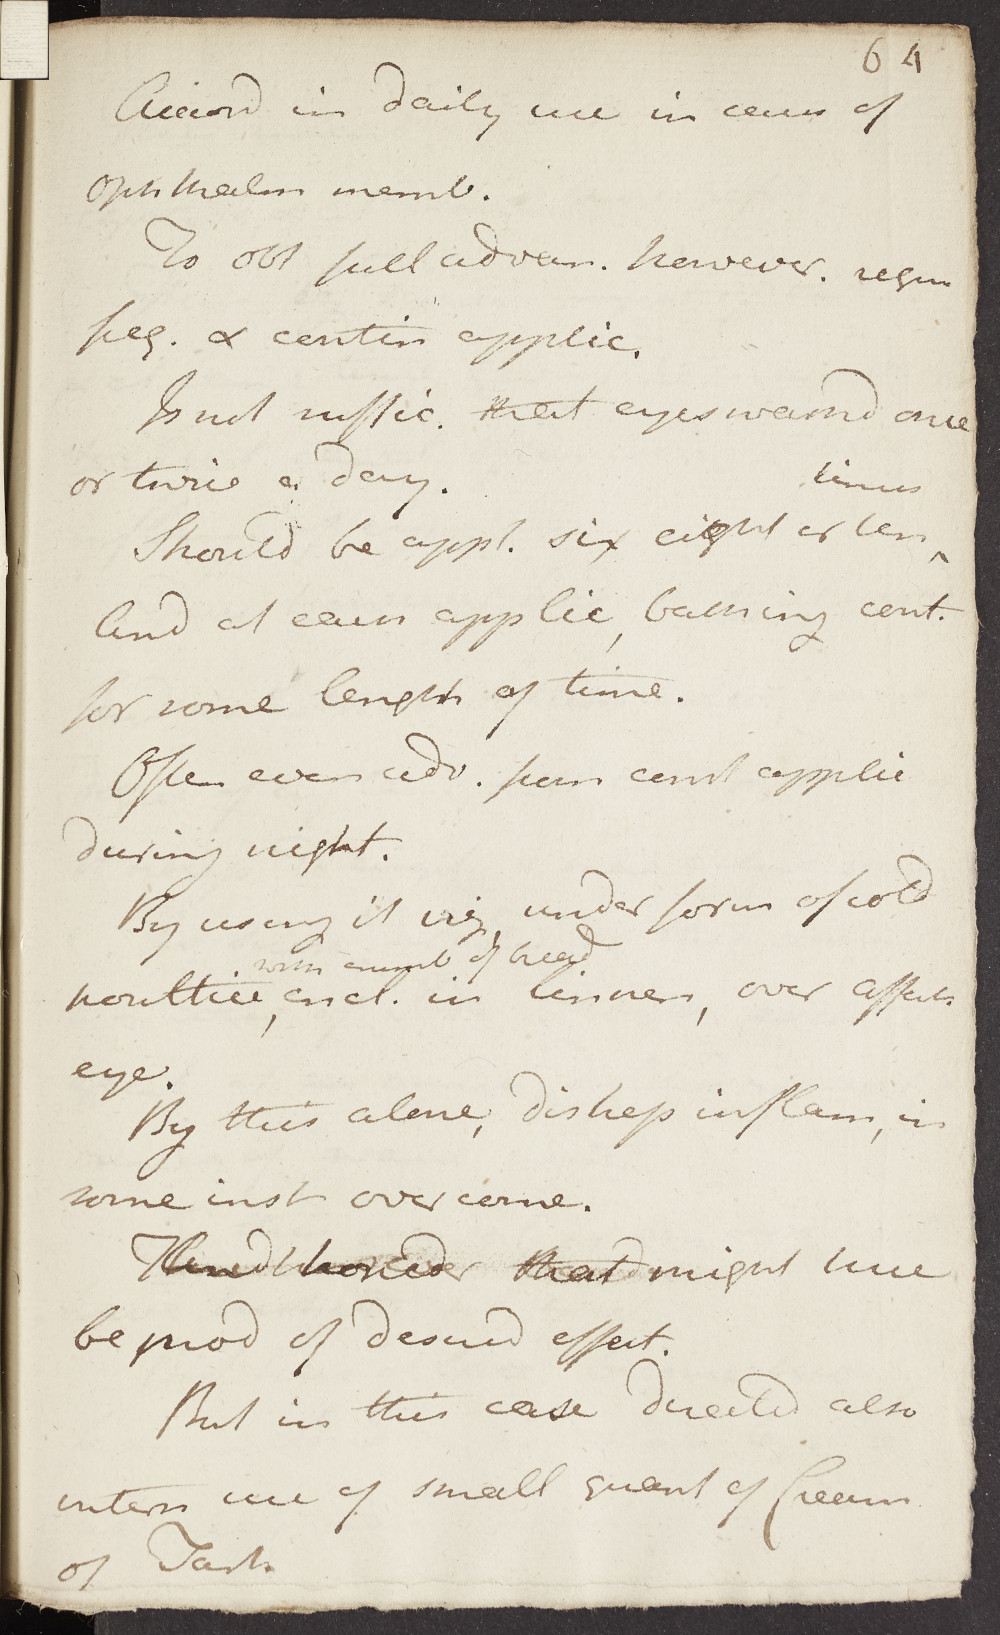 64
Accord in daily use in cases of
ophthalm memb.
To obt full advan. however. requ
freq. & contin applic.
Is not suffic. that eyes washd once
or twice a day.
times
Should be appl. six eight or ten ^
And at each applic, bathing cont.
for some length of time.
Often even adv. from const applic
during night.
By using it viz, under form of cold
with crumb of bread
poultice, encl. in linnen, over affect
eye.
By this alone, inflam, in
some inst overcome.
might here
be prod of desired effect.
But in this case directed also
intern use of small quant of Cream
of Tart.